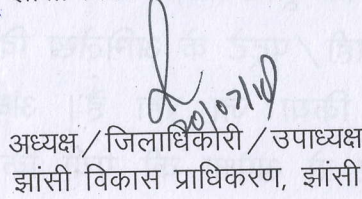 20/07/10
अध्यक्ष/जिलाधिकारी/उपाध्यक्ष
झांसी विकास प्राधिकरण, झांसी